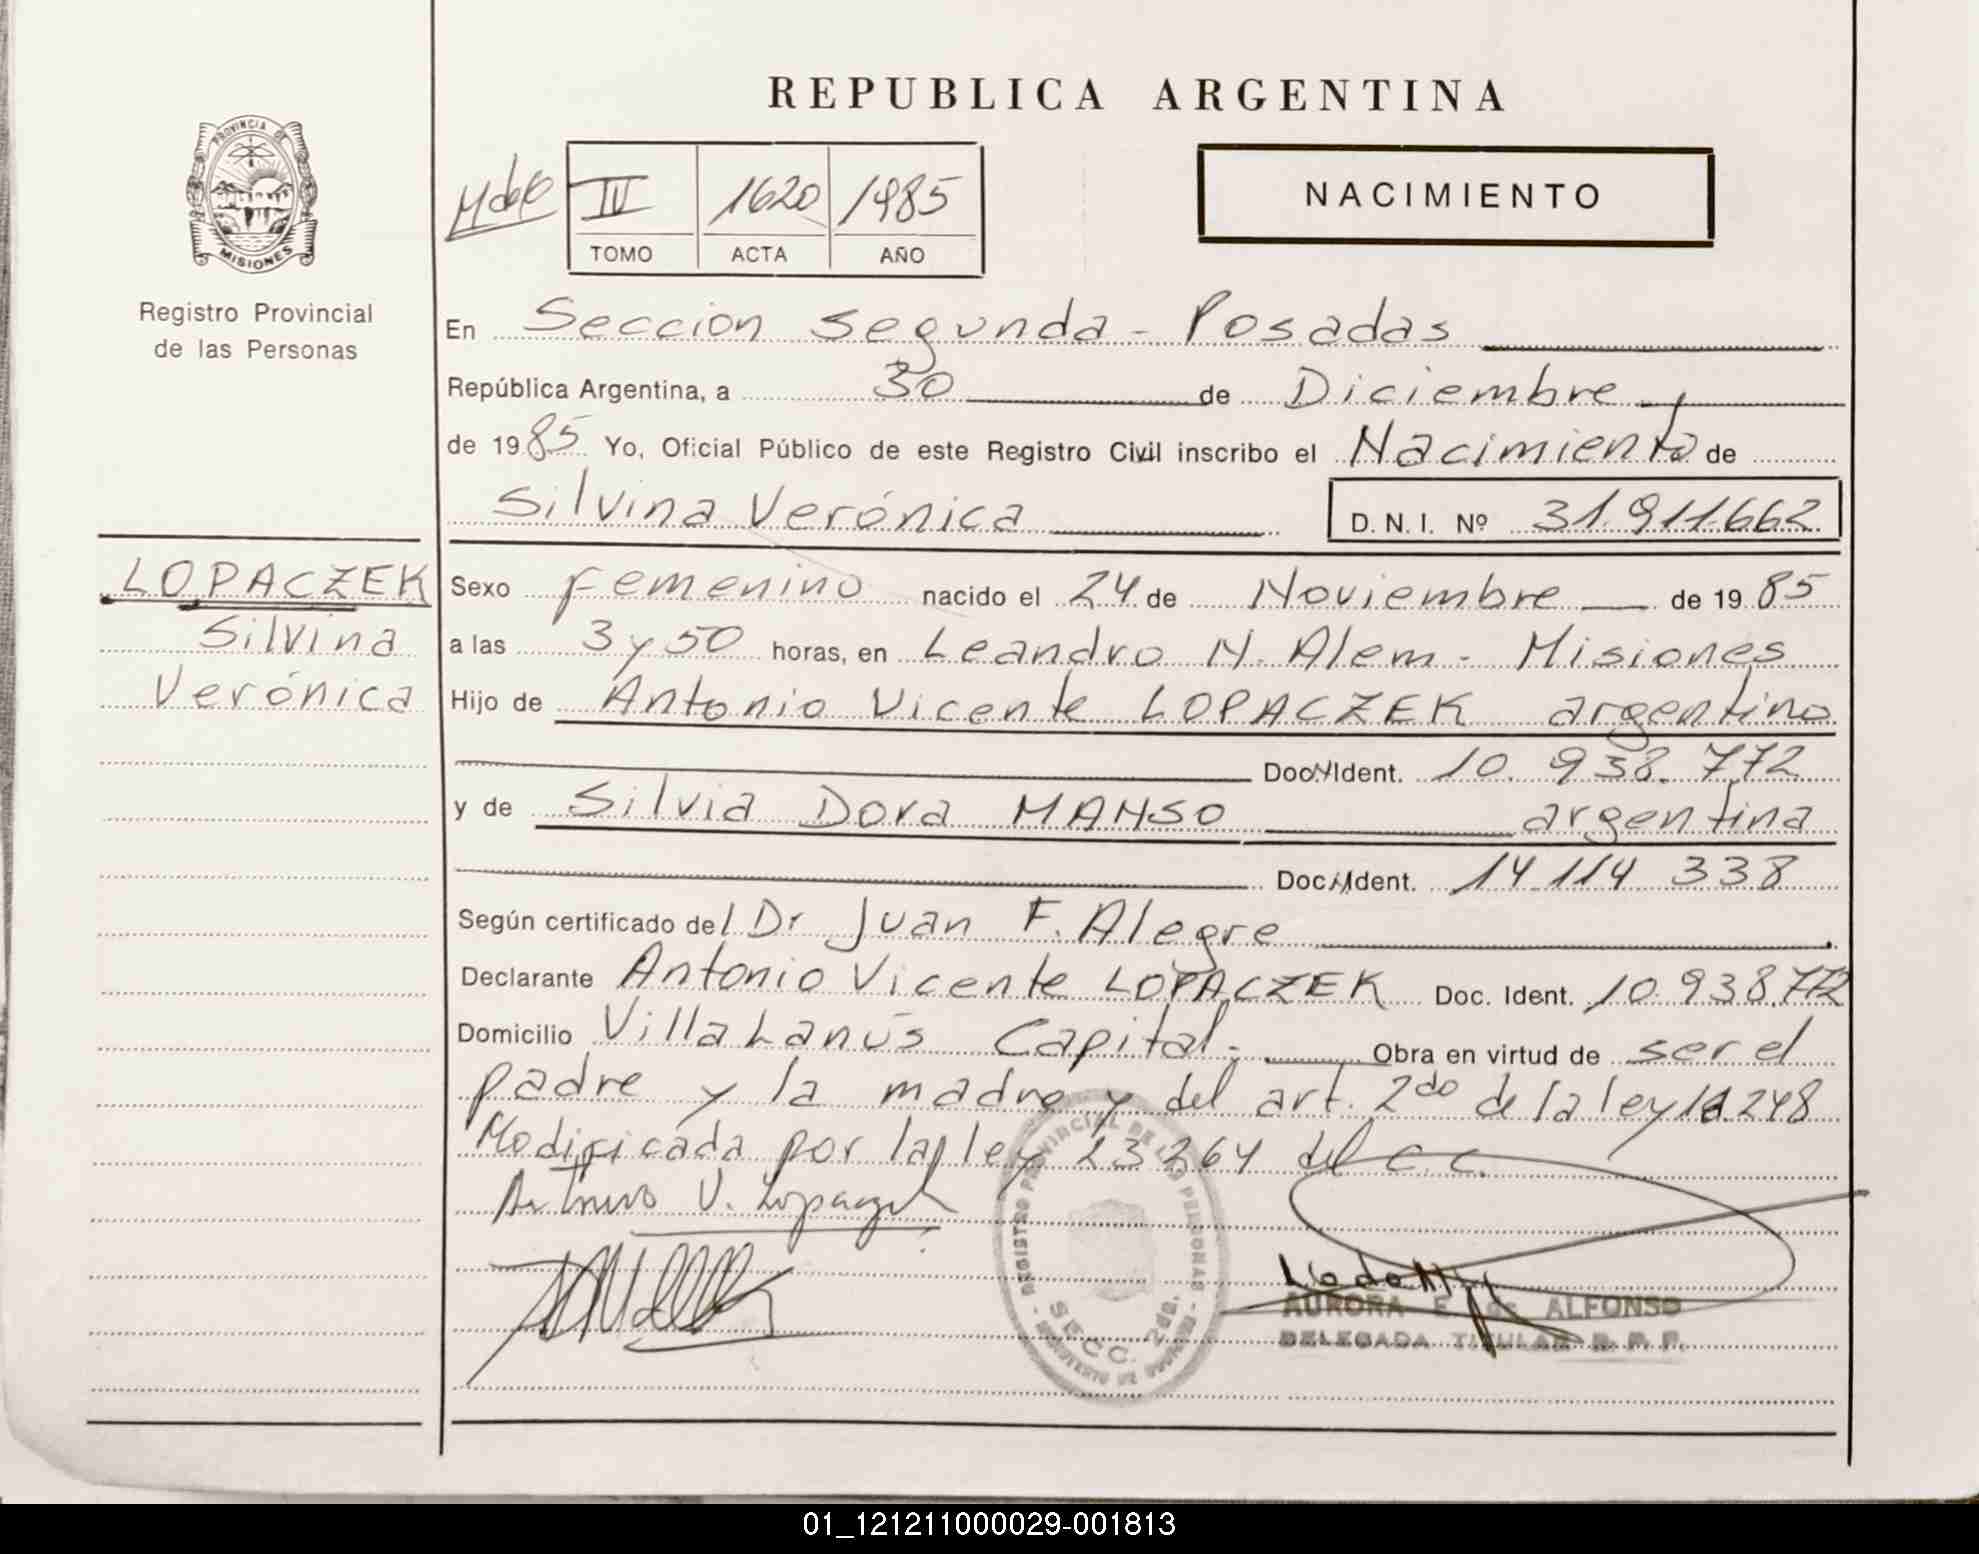 REPUBLICA ARGENTINA
PROVINCIA DE
MISIONES
Registro Provincial
de las Personas
IV 1620 1985
TOMO ACTA AÑO
NACIMIENTO
En Sección Segunda - Posadas
República Argentina, a 30 de Diciembre
de 1985 Yo, Oficial Público de este Registro Civil inscribo el Nacimiento de
Silvina Verónica D.N.I. Nº 31.911.662
LOPACZEK
Silvina
Verónica
Sexo Femenino nacido el 24 de Noviembre de 1985
a las 3 y 50 horas, en Leandro N. Alem - Misiones
Hijo de Antonio Vicente LOPACZEK argentino
Doc. Ident. 10.938.772
y de Silvia Dora MANSO argentina
Doc. Ident. 14 114 338
Según certificado del Dr Juan F. Alegre
Declarante Antonio Vicente LOPACZEK Doc. Ident. 10.938.772
Domicilio Villa Lanús Capital. Obra en virtud de ser el
padre y la madre y del art. 2do de la ley 18.248
Modificada por la ley 23264 del C.C.
REGISTRO PROVINCIAL DE LAS PERSONAS
SECC. 2da.
AURORA E. de ALFONSO
DELEGADA TITULAR R. P. P.
01_121211000029-001813